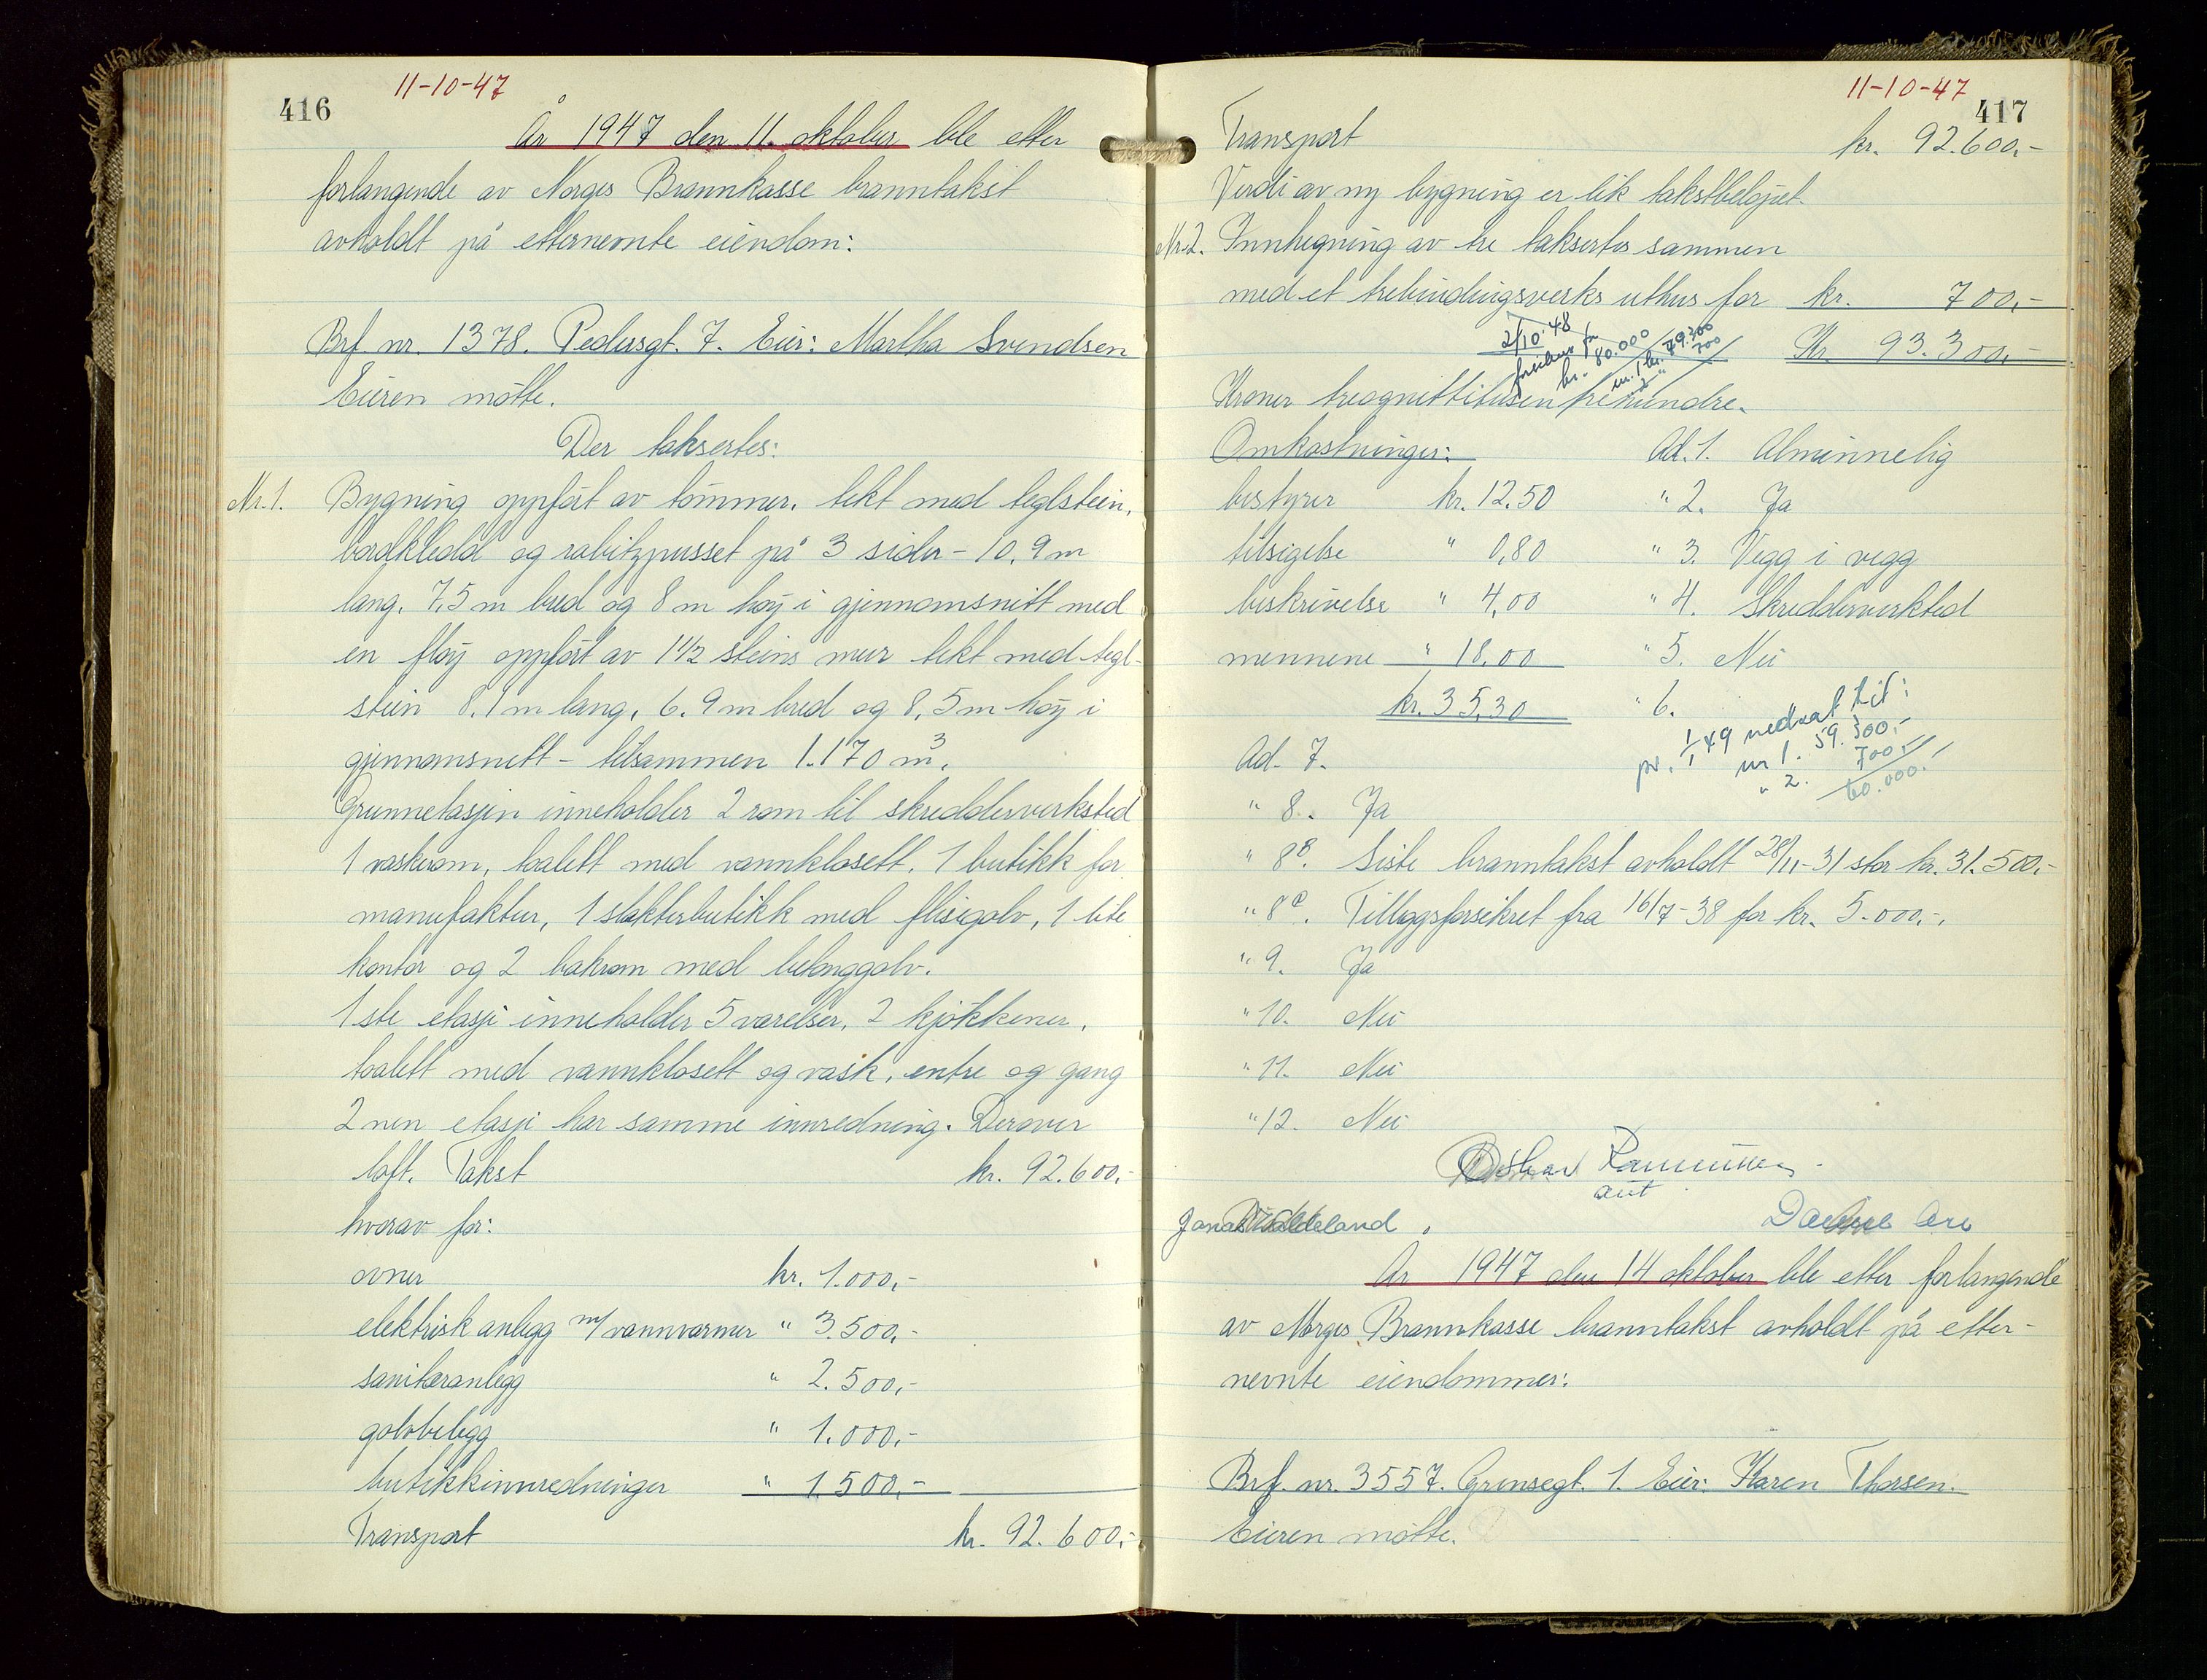 416
11-10-47
År 1947 den 11. oktober ble etter
forlangende av Norges Brannkasse branntakst
avholdt på etternevnte eiendom:
Brf nr. 1378. Pedersgt. 7. Eier: Martha Svendsen
Eieren møtte.
Der taksertes:
Nr. 1. Bygning oppført av tømmer, tekt med teglstein,
bordkledd og rabitzpusset på 3 sider - 10,9 m
lang, 7,5 m bred og 8 m høy i gjennomsnitt med
en fløy oppført av 1 1/2 steins mur tekt med tegl-
stein 8,1 m lang, 6,9 m bred og 8,5 m høy i
gjennomsnitt - tilsammen 1.170 m³.
Grunnetasjen inneholder 2 rom til skredderverksted
1 vaskerom, toalett med vannklosett, 1 butikk for
manufaktur, 1 slakterbutikk med flisegolv, 1 lite
kontor og 2 bakrom med betonggolv.
1ste etasje inneholder 5 værelser, 2 kjøkkener,
toalett med vannklosett og vask, entre og gang
2nen etasje har samme innredning. Derover
loft. Takst kr. 92.600,-
hvorav for:
ovner kr. 1.000,-
elektrisk anlegg m/ vannvarmer " 3.500,-
sanitæranlegg " 2.500,-
golvbelegg " 1.000,-
butikkinnredninger " 1500,-
Transport kr. 92.600,-
11-10-47
417
Transport kr. 92.600,-
Verdi av ny bygning er lik takstbeløpet.
Nr. 2. Innhegning av tre taksertes sammen
med et trebindingsverks uthus for kr. 700,-
Kr. 93.300,-
2/10-48
kr. 80.000
nr. 1 kr. 79.300
" 2 " 700
Kroner treognittitusen trehundre.
Omkostninger: Ad. 1. Alminnelig
bestyrer kr. 12.50 " 2. Ja
tilsigelse " 0,80 " 3. Vegg i vegg
beskrivelse " 4,00 " 4. Skredderverksted
mennene " 18,00 " 5. Nei
kr. 35,30 " 6.
pr. 1/1 49 nedsat til:
nr 1. 59.300,-
" 2. 700,-
60.000.-
Ad. 7.
" 8. Ja
" 8B. Siste branntakst avholdt 28/11-31 stor kr. 31.500,-
" 8C. Tilleggsforsikret fra 16/7-38 for kr. 5.000,-.
" 9. Ja
" 10. Nei
" 11. Nei
" 12. Nei
Oskar Rasmussen
aut
Jonas
År 1947 den 14 oktober ble etter forlangende
av Norges Brannkasse branntakst avholdt på etter-
nevnte eiendommer:
Brf. nr. 3557. Grensegt. 1. Eier: Karen Thorsen.
Eieren møtte.